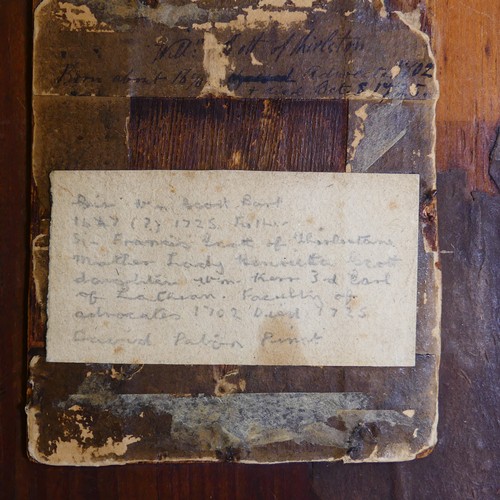 Wm Scott of Thirlston
From about 16 Advocate 1702
died Oct 8 1725.
Sir Wm Scott Bart
16 (?) 1725. Father
Sir Francis Scott of Thirlestane
Mother Lady Henrietta Scott
daughter Wm. Kerr 3rd Earl
of Lothian. Faculty of
advocates 1702 Died 1725
David Paton Pinxt